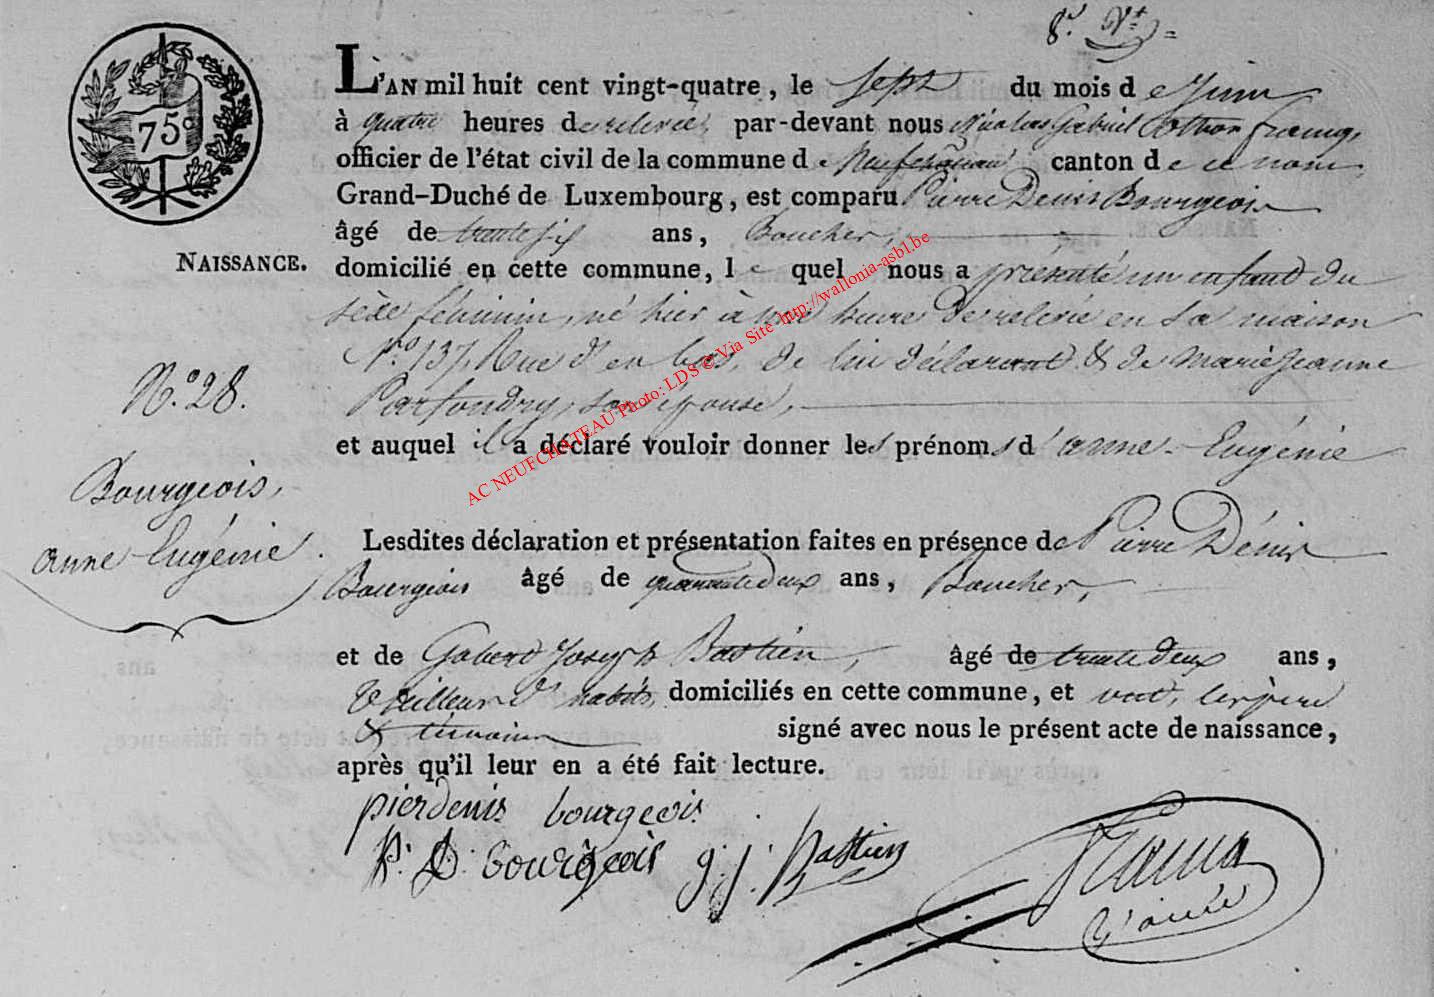 75c
L'AN mil huit cent vingt-quatre, le sept du mois de Juin
à quatre heures de relevée, par-devant nous Nicolas Gabriel
officier de l'état civil de la commune de Neufchâteau canton de ce nom
Grand-Duché de Luxembourg, est comparu Pierre Denis Bourgeois
âgé de trente six ans, Boucher,
NAISSANCE.
domicilié en cette commune, lequel nous a présenté un enfant du
sèxe féminin, né hier à heure de relevée en sa maison
N.o 137, Rue d'en bas, de lui déclarant & de Marie Jeanne
Parfondry, son épouse,
N.o 28.
et auquel il a déclaré vouloir donner les prénoms d'anne-Eugénie
Bourgeois,
anne-Eugénie.
Lesdites déclaration et présentation faites en présence de Pierre Dénis
Bourgeois âgé de quarante deux ans, Boucher,
et de Gobert Joseph Bastien, âgé de trente deux ans,
tailleur d'habits, domiciliés en cette commune, et ont, les père
& témoins signé avec nous le présent acte de naissance,
après qu'il leur en a été fait lecture.
pierdenis bourgeois
P. D. bourgeois g. j. Bastien
AC NEUFCHATEAU Photo: LDS © Via Site http://wallonia-asbl.be